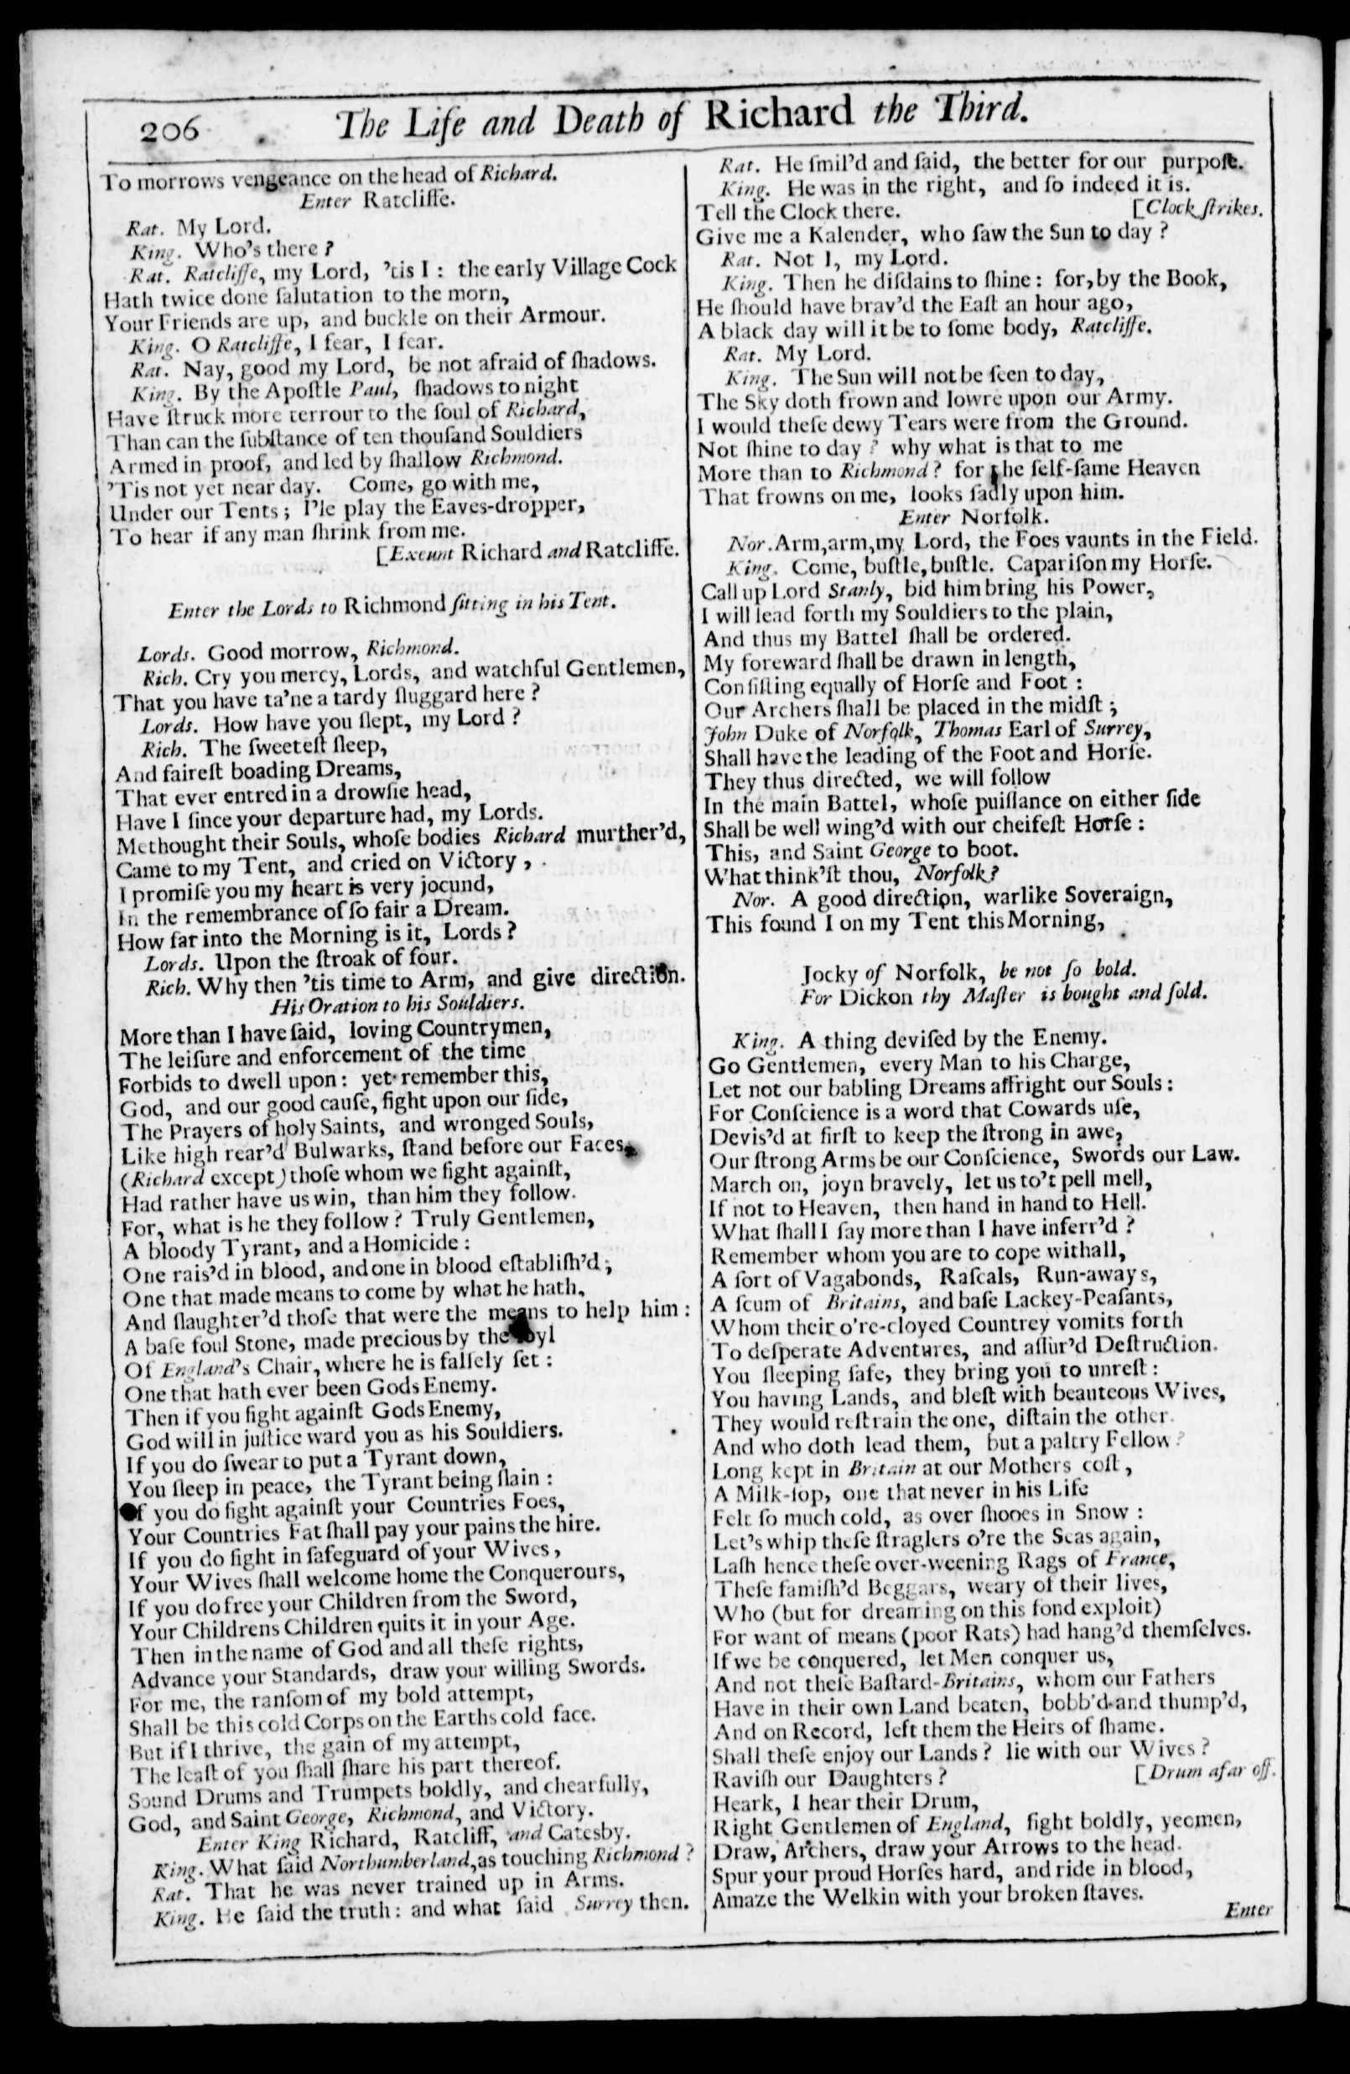 206
The Life and Death of Richard the Third.
To morrows vengeance on the head of Richard.
Enter Ratcliffe.
Rat. My Lord.
King. Who's there?
Rat. Ratcliffe, my Lord, 'tis I: the early Village Cock
Hath twice done ſalutation to the morn,
Your Friends are up, and buckle on their Armour.
King. O Ratcliffe, I fear, I fear.
Rat. Nay, good my Lord, be not afraid of ſhadows.
King. By the Apoſtle Paul, ſhadows to night
Have ſtruck more terrour to the ſoul of Richard,
Than can the ſubſtance of ten thouſand Souldiers
Armed in proof, and led by ſhallow Richmond.
'Tis not yet near day. Come, go with me,
Under our Tents; I'le play the Eaves-dropper,
To hear if any man ſhrink from me.
[Exeunt Richard and Ratcliffe.
Enter the Lords to Richmond ſitting in his Tent.
Lords. Good morrow, Richmond.
Rich. Cry you mercy, Lords, and watchful Gentlemen,
That you have ta'ne a tardy ſluggard here?
Lords. How have you ſlept, my Lord?
Rich. The ſweeteſt ſleep,
And faireſt boading Dreams,
That ever entred in a drowſie head,
Have I ſince your departure had, my Lords.
Methought their Souls, whoſe bodies Richard murther'd,
Came to my Tent, and cried on Victory,
I promiſe you my heart is very jocund,
In the remembrance of ſo fair a Dream.
How far into the Morning is it, Lords?
Lords. Upon the ſtroak of four.
Rich. Why then 'tis time to Arm, and give direction.
His Oration to his Souldiers.
More than I have ſaid, loving Countrymen,
The leiſure and enforcement of the time
Forbids to dwell upon: yet remember this,
God, and our good cauſe, fight upon our ſide,
The Prayers of holy Saints, and wronged Souls,
Like high rear'd Bulwarks, ſtand before our Faces,
(Richard except) thoſe whom we fight againſt,
Had rather have us win, than him they follow.
For, what is he they follow? Truly Gentlemen,
A bloody Tyrant, and a Homicide:
One rais'd in blood, and one in blood eſtabliſh'd;
One that made means to come by what he hath,
And ſlaughter'd thoſe that were the means to help him:
A baſe foul Stone, made precious by the
Of England's Chair, where he is falſely ſet:
One that hath ever been Gods Enemy.
Then if you fight againſt Gods Enemy,
God will in juſtice ward you as his Souldiers.
If you do ſwear to put a Tyrant down,
You ſleep in peace, the Tyrant being ſlain:
If you do fight againſt your Countries Foes,
Your Countries Fat ſhall pay your pains the hire.
If you do fight in ſafeguard of your Wives,
Your Wives ſhall welcome home the Conquerours,
If you do free your Children from the Sword,
Your Childrens Children quits it in your Age.
Then in the name of God and all theſe rights,
Advance your Standards, draw your willing Swords.
For me, the ranſom of my bold attempt,
Shall be this cold Corps on the Earths cold face.
But if I thrive, the gain of my attempt,
The leaſt of you ſhall ſhare his part thereof.
Sound Drums and Trumpets boldly, and chearfully,
God, and Saint George, Richmond, and Victory.
Enter King Richard, Ratcliff, and Catesby.
King. What ſaid Northumberland, as touching Richmond?
Rat. That he was never trained up in Arms.
King. He ſaid the truth: and what ſaid Surrey then.
Rat. He ſmil'd and ſaid, the better for our purpoſe.
King. He was in the right, and ſo indeed it is.
Tell the Clock there. [Clock ſtrikes.
Give me a Kalender, who ſaw the Sun to day?
Rat. Not I, my Lord.
King. Then he diſdains to ſhine: for, by the Book,
He ſhould have brav'd the Eaſt an hour ago,
A black day will it be to ſome body, Ratcliffe.
Rat. My Lord.
King. The Sun will not be ſeen to day,
The Sky doth frown and lowre upon our Army.
I would theſe dewy Tears were from the Ground.
Not ſhine to day? why what is that to me
More than to Richmond? for the ſelf-ſame Heaven
That frowns on me, looks ſadly upon him.
Enter Norfolk.
Nor. Arm, arm, my Lord, the Foes vaunts in the Field.
King. Come, buſtle, buſtle. Capariſon my Horſe.
Call up Lord Stanly, bid him bring his Power,
I will lead forth my Souldiers to the plain,
And thus my Battel ſhall be ordered.
My foreward ſhall be drawn in length,
Conſiſting equally of Horſe and Foot:
Our Archers ſhall be placed in the midſt;
John Duke of Norfolk, Thomas Earl of Surrey,
Shall have the leading of the Foot and Horſe.
They thus directed, we will follow
In the main Battel, whoſe puiſſance on either ſide
Shall be well wing'd with our cheifeſt Horſe:
This, and Saint George to boot.
What think'ſt thou, Norfolk?
Nor. A good direction, warlike Soveraign,
This found I on my Tent this Morning,
Jocky of Norfolk, be not ſo bold.
For Dickon thy Maſter is bought and ſold.
King. A thing deviſed by the Enemy.
Go Gentlemen, every Man to his Charge,
Let not our babling Dreams affright our Souls:
For Conſcience is a word that Cowards uſe,
Devis'd at firſt to keep the ſtrong in awe,
Our ſtrong Arms be our Conſcience, Swords our Law.
March on, joyn bravely, let us to't pell mell,
If not to Heaven, then hand in hand to Hell.
What ſhall I ſay more than I have inferr'd?
Remember whom you are to cope withall,
A ſort of Vagabonds, Raſcals, Run-aways,
A ſcum of Britains, and baſe Lackey-Peaſants,
Whom their o're-cloyed Countrey vomits forth
To deſperate Adventures, and aſſur'd Deſtruction.
You ſleeping ſafe, they bring you to unreſt:
You having Lands, and bleſt with beauteous Wives,
They would reſtrain the one, diſtain the other.
And who doth lead them, but a paltry Fellow?
Long kept in Britain at our Mothers coſt,
A Milk-ſop, one that never in his Life
Felt ſo much cold, as over ſhooes in Snow:
Let's whip theſe ſtraglers o're the Seas again,
Laſh hence theſe over-weening Rags of France,
Theſe famiſh'd Beggars, weary of their lives,
Who (but for dreaming on this fond exploit)
For want of means (poor Rats) had hang'd themſelves.
If we be conquered, let Men conquer us,
And not theſe Baſtard-Britains, whom our Fathers
Have in their own Land beaten, bobb'd and thump'd,
And on Record, left them the Heirs of ſhame.
Shall theſe enjoy our Lands? lie with our Wives?
Raviſh our Daughters? [Drum afar off.
Heark, I hear their Drum,
Right Gentlemen of England, fight boldly, yeomen,
Draw, Archers, draw your Arrows to the head.
Spur your proud Horſes hard, and ride in blood,
Amaze the Welkin with your broken ſtaves.
Enter